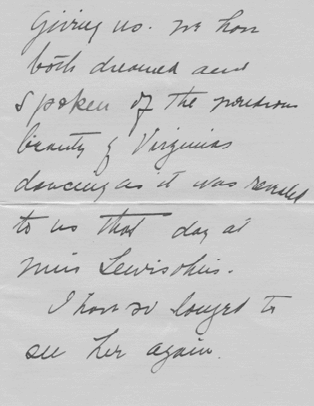 giving us. We have
both dreamed and
spoken of the wondrous
beauty of Virginias
dancing as it was revealed
to us that day at
Miss Lewisohns.
I have so longed to
see her again.